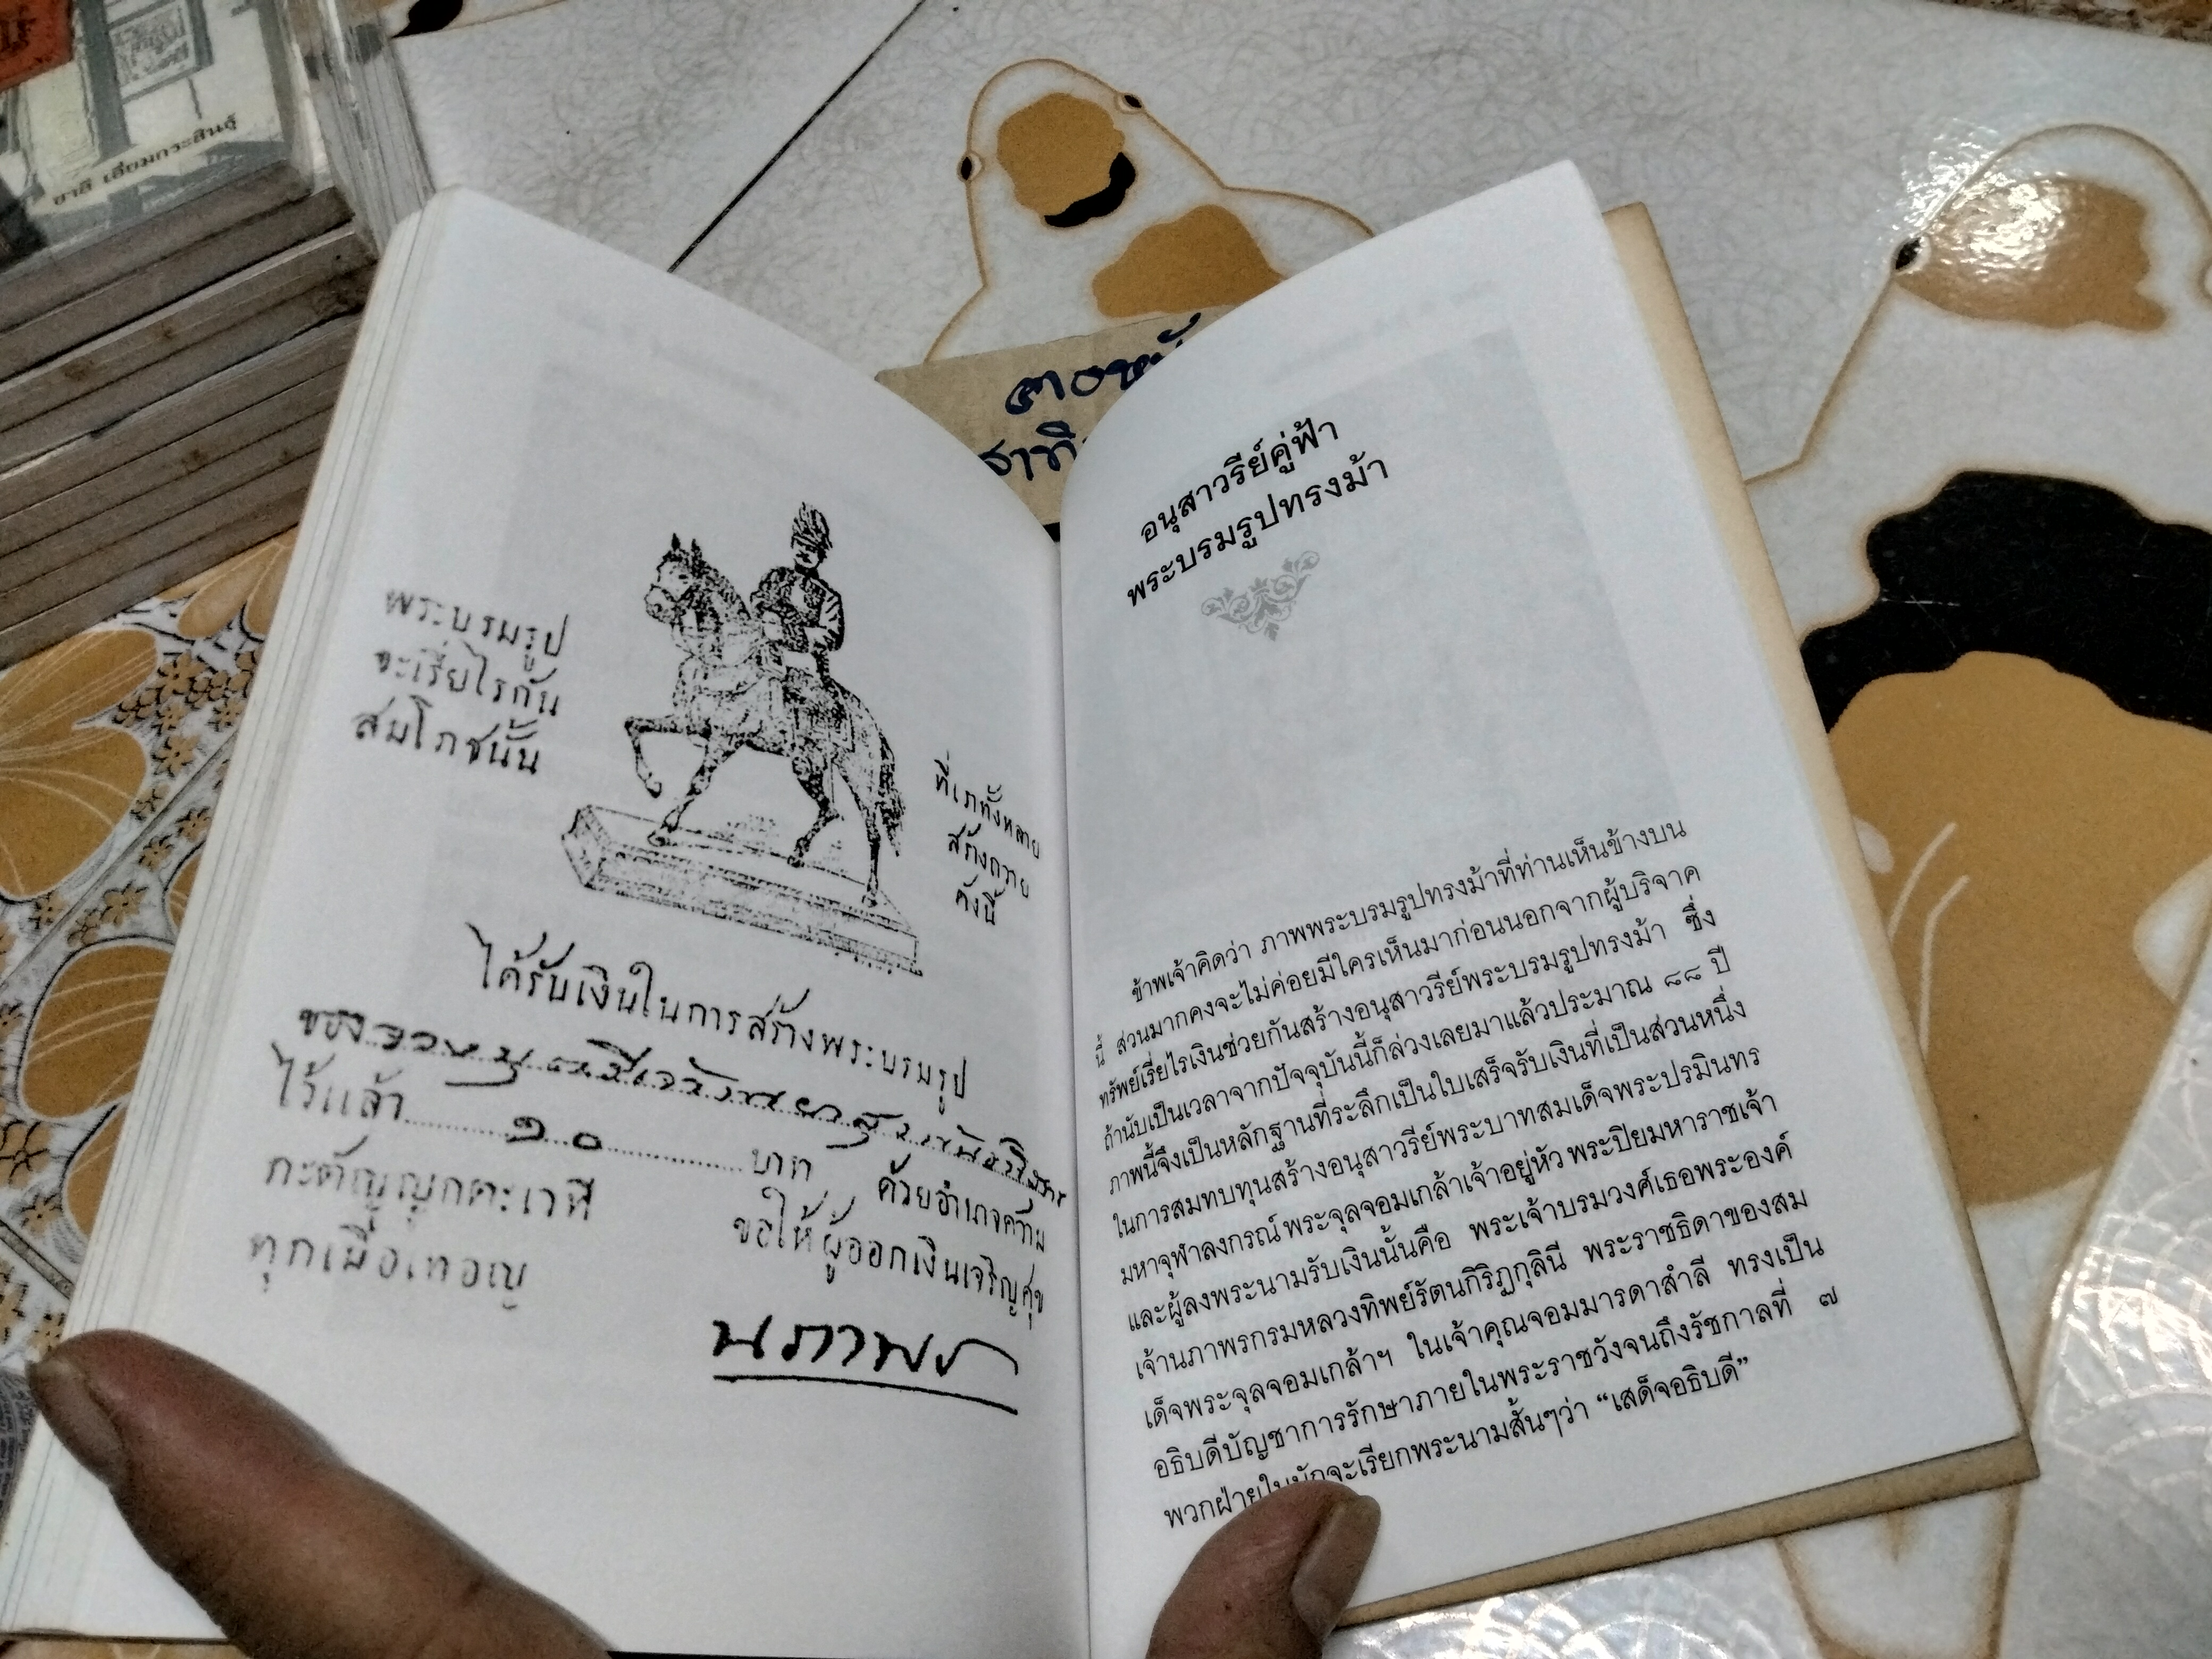 ชาลี เอี่ยมกระสินธุ์
พระบรมรูป
จะเรี่ยไรกัน
สมโภชนั้น
ที่เภทั้งหลาย
สร้างถวาย
ดังนี้
ได้รับเงินในการสร้างพระบรมรูป
ของ
ไว้แล้ว ๑๐ บาท ด้วยอำเภอความ
กะตัญญูกตะเวที ขอให้ผู้ออกเงินเจริญศุข
ทุกเมื่อเทอญ
นภาพร
อนุสาวรีย์คู่ฟ้า
พระบรมรูปทรงม้า
ข้าพเจ้าคิดว่า ภาพพระบรมรูปทรงม้าที่ท่านเห็นข้างบน
นี้ ส่วนมากคงจะไม่ค่อยมีใครเห็นมาก่อนนอกจากผู้บริจาค
ทรัพย์เรี่ยไรเงินช่วยกันสร้างอนุสาวรีย์พระบรมรูปทรงม้า ซึ่ง
ถ้านับเป็นเวลาจากปัจจุบันนี้ก็ล่วงเลยมาแล้วประมาณ ๘๘ ปี
ภาพนี้จึงเป็นหลักฐานที่ระลึกเป็นใบเสร็จรับเงินที่เป็นส่วนหนึ่ง
ในการสมทบทุนสร้างอนุสาวรีย์พระบาทสมเด็จพระปรมินทร
มหาจุฬาลงกรณ์ พระจุลจอมเกล้าเจ้าอยู่หัว พระปิยมหาราชเจ้า
และผู้ลงพระนามรับเงินนั้นคือ พระเจ้าบรมวงศ์เธอพระองค์
เจ้านภาพรกรมหลวงทิพย์รัตนกิริฏกุลินี พระราชธิดาของสม
เด็จพระจุลจอมเกล้าฯ ในเจ้าคุณจอมมารดาสำลี ทรงเป็น
อธิบดีบัญชาการรักษาภายในพระราชวังจนถึงรัชกาลที่ ๗
พวกฝ่ายในมักจะเรียกพระนามสั้นๆว่า “เสด็จอธิบดี”